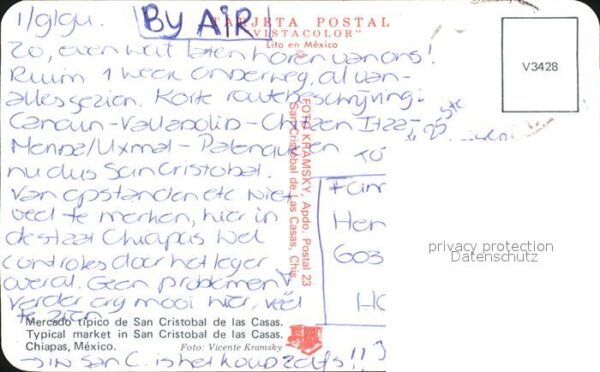 1/9/94.
BY AiR
TARJETA POSTAL
"VISTACOLOR"
Lito en México
V3428
Zo, even wat laten horen van ons!
Ruim 1 week onderweg, al van-
alles gezien. Korte routebeschrijving:
Cancun-Valladolid-Chitzen Itza-
Merida/Uxmal-Palenque en
nu dus San Cristobal.
Van opstanden etc. niet
veel te merken, hier in
de staat Chiapas wel
controles door het leger
overal. Geen problemen
verder erg mooi hier, veel
te zien.
FOTO KRAMSKY, Apdo. Postal 23
San Cristobal de Las Casas, Chis.
TO
Fam
Her
603
privacy protection
Datenschutz
Ho
Mercado típico de San Cristobal de las Casas.
Typical market in San Cristobal de las Casas.
Chiapas, México.
Foto: Vicente Kramsky
in San C. is het koud zelfs!!